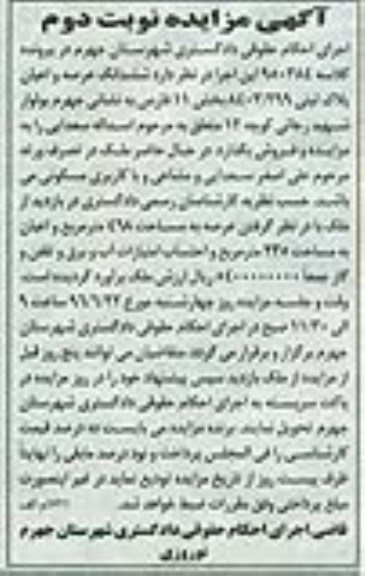 آگهی مزایده نوبت دوم
اجرای احکام حقوقی دادگستری شهرستان جهرم در پرونده
کلاسه ۹۵۰۳۸۴ این اجرا در نظر دارد ششدانگ عرصه و اعیان
پلاک ثبتی ۸۴۰۳/۲۹۹ بخش ۱۱ فارس به نشانی جهرم بولوار
شهید رجائی کوچه ۱۲ متعلق به مرحوم اسداله صحدایی را به
مزایده و فروش بگذارد. در حال حاضر ملک در تصرف ورثه
مرحوم علی اصغر و مشاعی و با کاربری مسکونی می
باشد. حسب نظریه کارشناسان رسمی دادگستری در بازدید از
ملک با در نظر گرفتن عرصه به مساحت ۴۹۸ مترمربع و اعیان
به مساحت ۲۳۵ مترمربع و احتساب امتیازات آب و برق و تلفن و
گاز جمعاً ریال ارزش ملک برآورد گردیده است.
وقت و جلسه مزایده روز چهارشنبه مورخ ۹۶/۶/۲۲ ساعت ۹
الی ۱۱/۳۰ صبح در اجرای احکام حقوقی دادگستری شهرستان
جهرم برگزار و برقرار می گردد متقاضیان می توانند پنج روز قبل
از مزایده از ملک بازدید سپس پیشنهاد خود را در روز مزایده در
پاکت سربسته به اجرای احکام حقوقی دادگستری شهرستان
جهرم تحویل نمایند. برنده مزایده می بایست ده درصد قیمت
کارشناسی را فی المجلس پرداخت و نود درصد مابقی را نهایتاً
ظرف بیست روز از تاریخ مزایده تودیع نماید در غیر اینصورت
مبلغ پرداختی وفق مقررات ضبط خواهد شد. م الف
قاضی اجرای احکام حقوقی دادگستری شهرستان جهرم
نوروزی